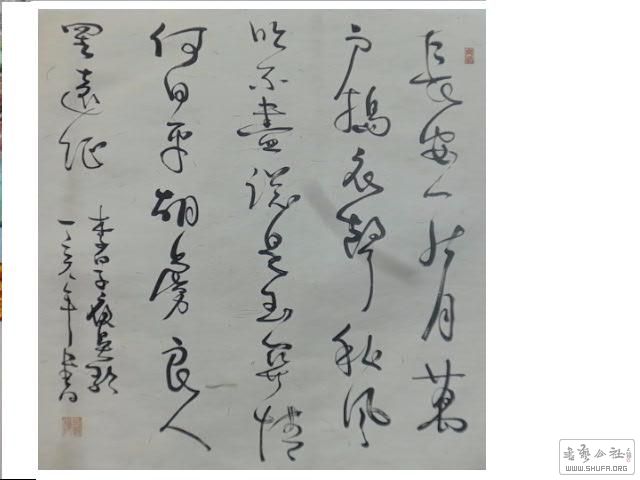 長安一片月萬
户搗衣聲秋風
吹不盡總是玉關情
何日平胡虜良人
罷遠征
李白子夜吴歌
丁亥年書
書藝公社
WWW.SHUFA.ORG